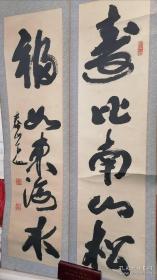 寿比南山松
福如东海水